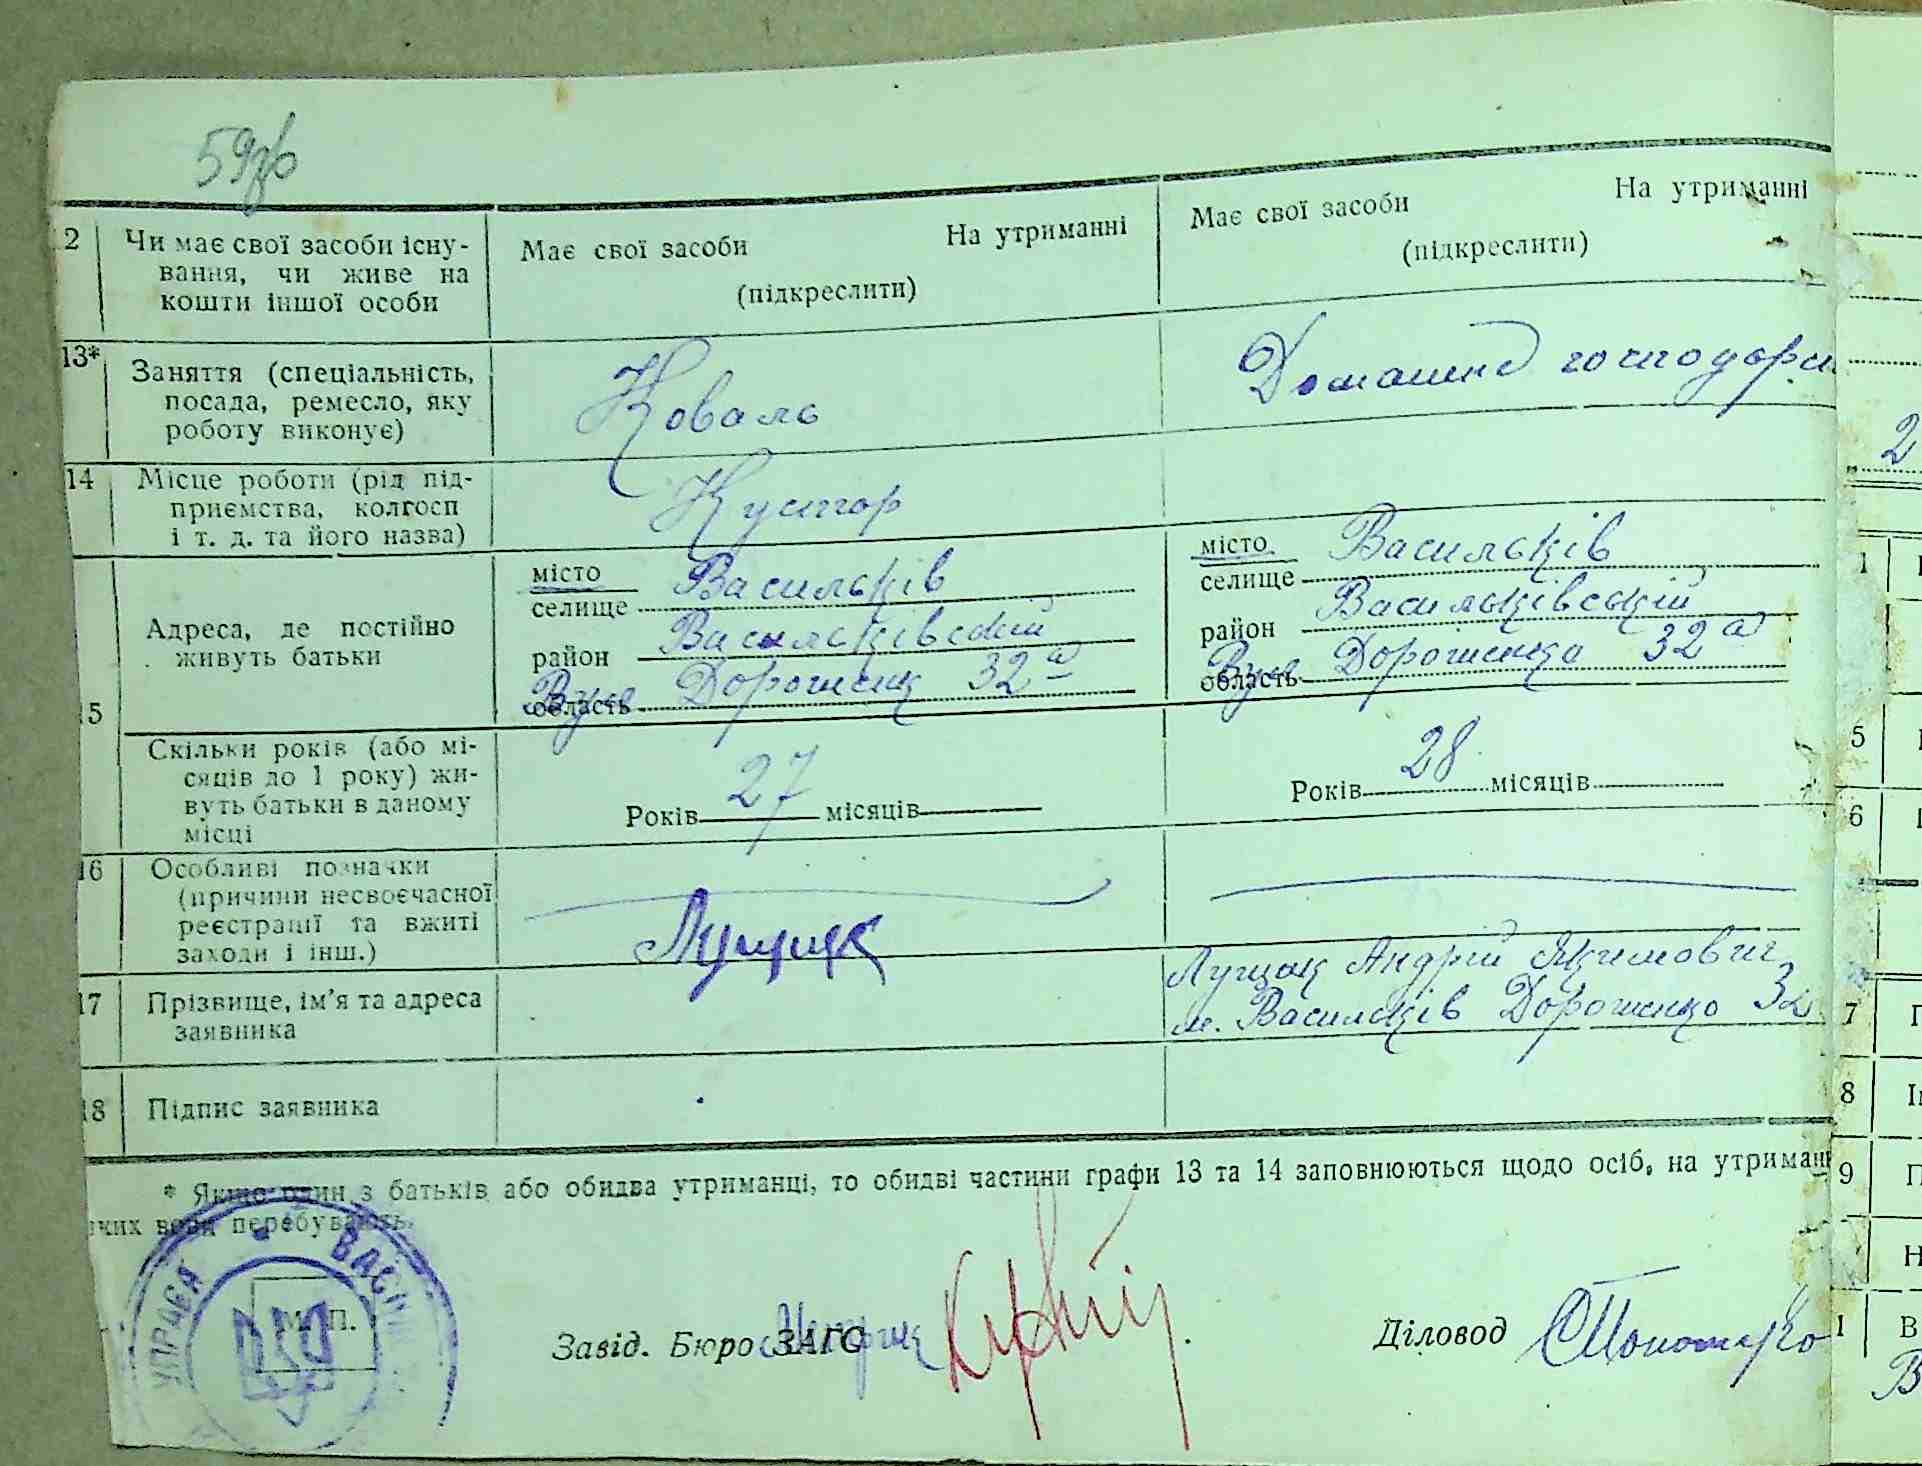 59зв
2 Чи має свої засоби існу-
вання, чи живе на
кошти іншої особи
Має свої засоби На утриманні
(підкреслити)
Має свої засоби На утриманні
(підкреслити)
13* Заняття (спеціальність,
посада, ремесло, яку
роботу виконує)
Коваль
Домашнє господарс
14 Місце роботи (рід під-
приємства, колгосп
і т. д. та його назва)
Кустар
15 Адреса, де постійно
живуть батьки
місто Васильків
селище
район Васильківский
область Вул. Дорошенк 32а
місто Васильків
селище
район Васильківський
область Вул. Дорошенка 32а
Скільки років (або мі-
сяців до 1 року) жи-
вуть батьки в даному
місці
Років 27 місяців
Років 28 місяців
16 Особливі позначки
(причини несвоєчасної
реєстрації та вжиті
заходи і інш.)
Лущик
17 Прізвище, ім'я та адреса
заявника
Лущик Андрій Якимович
м. Васильків Дорошенко 32
18 Підпис заявника
* Якщо один з батьків або обидва утриманці, то обидві частини графи 13 та 14 заповнюються щодо осіб, на утриман
яких вони перебувають.
УПРАВА ВАСИ
М. П.
Завід. Бюро ЗАГС
Діловод Пономарко
2
1
5
6
7 П
8 Ім
9 П
Н
1 В
В